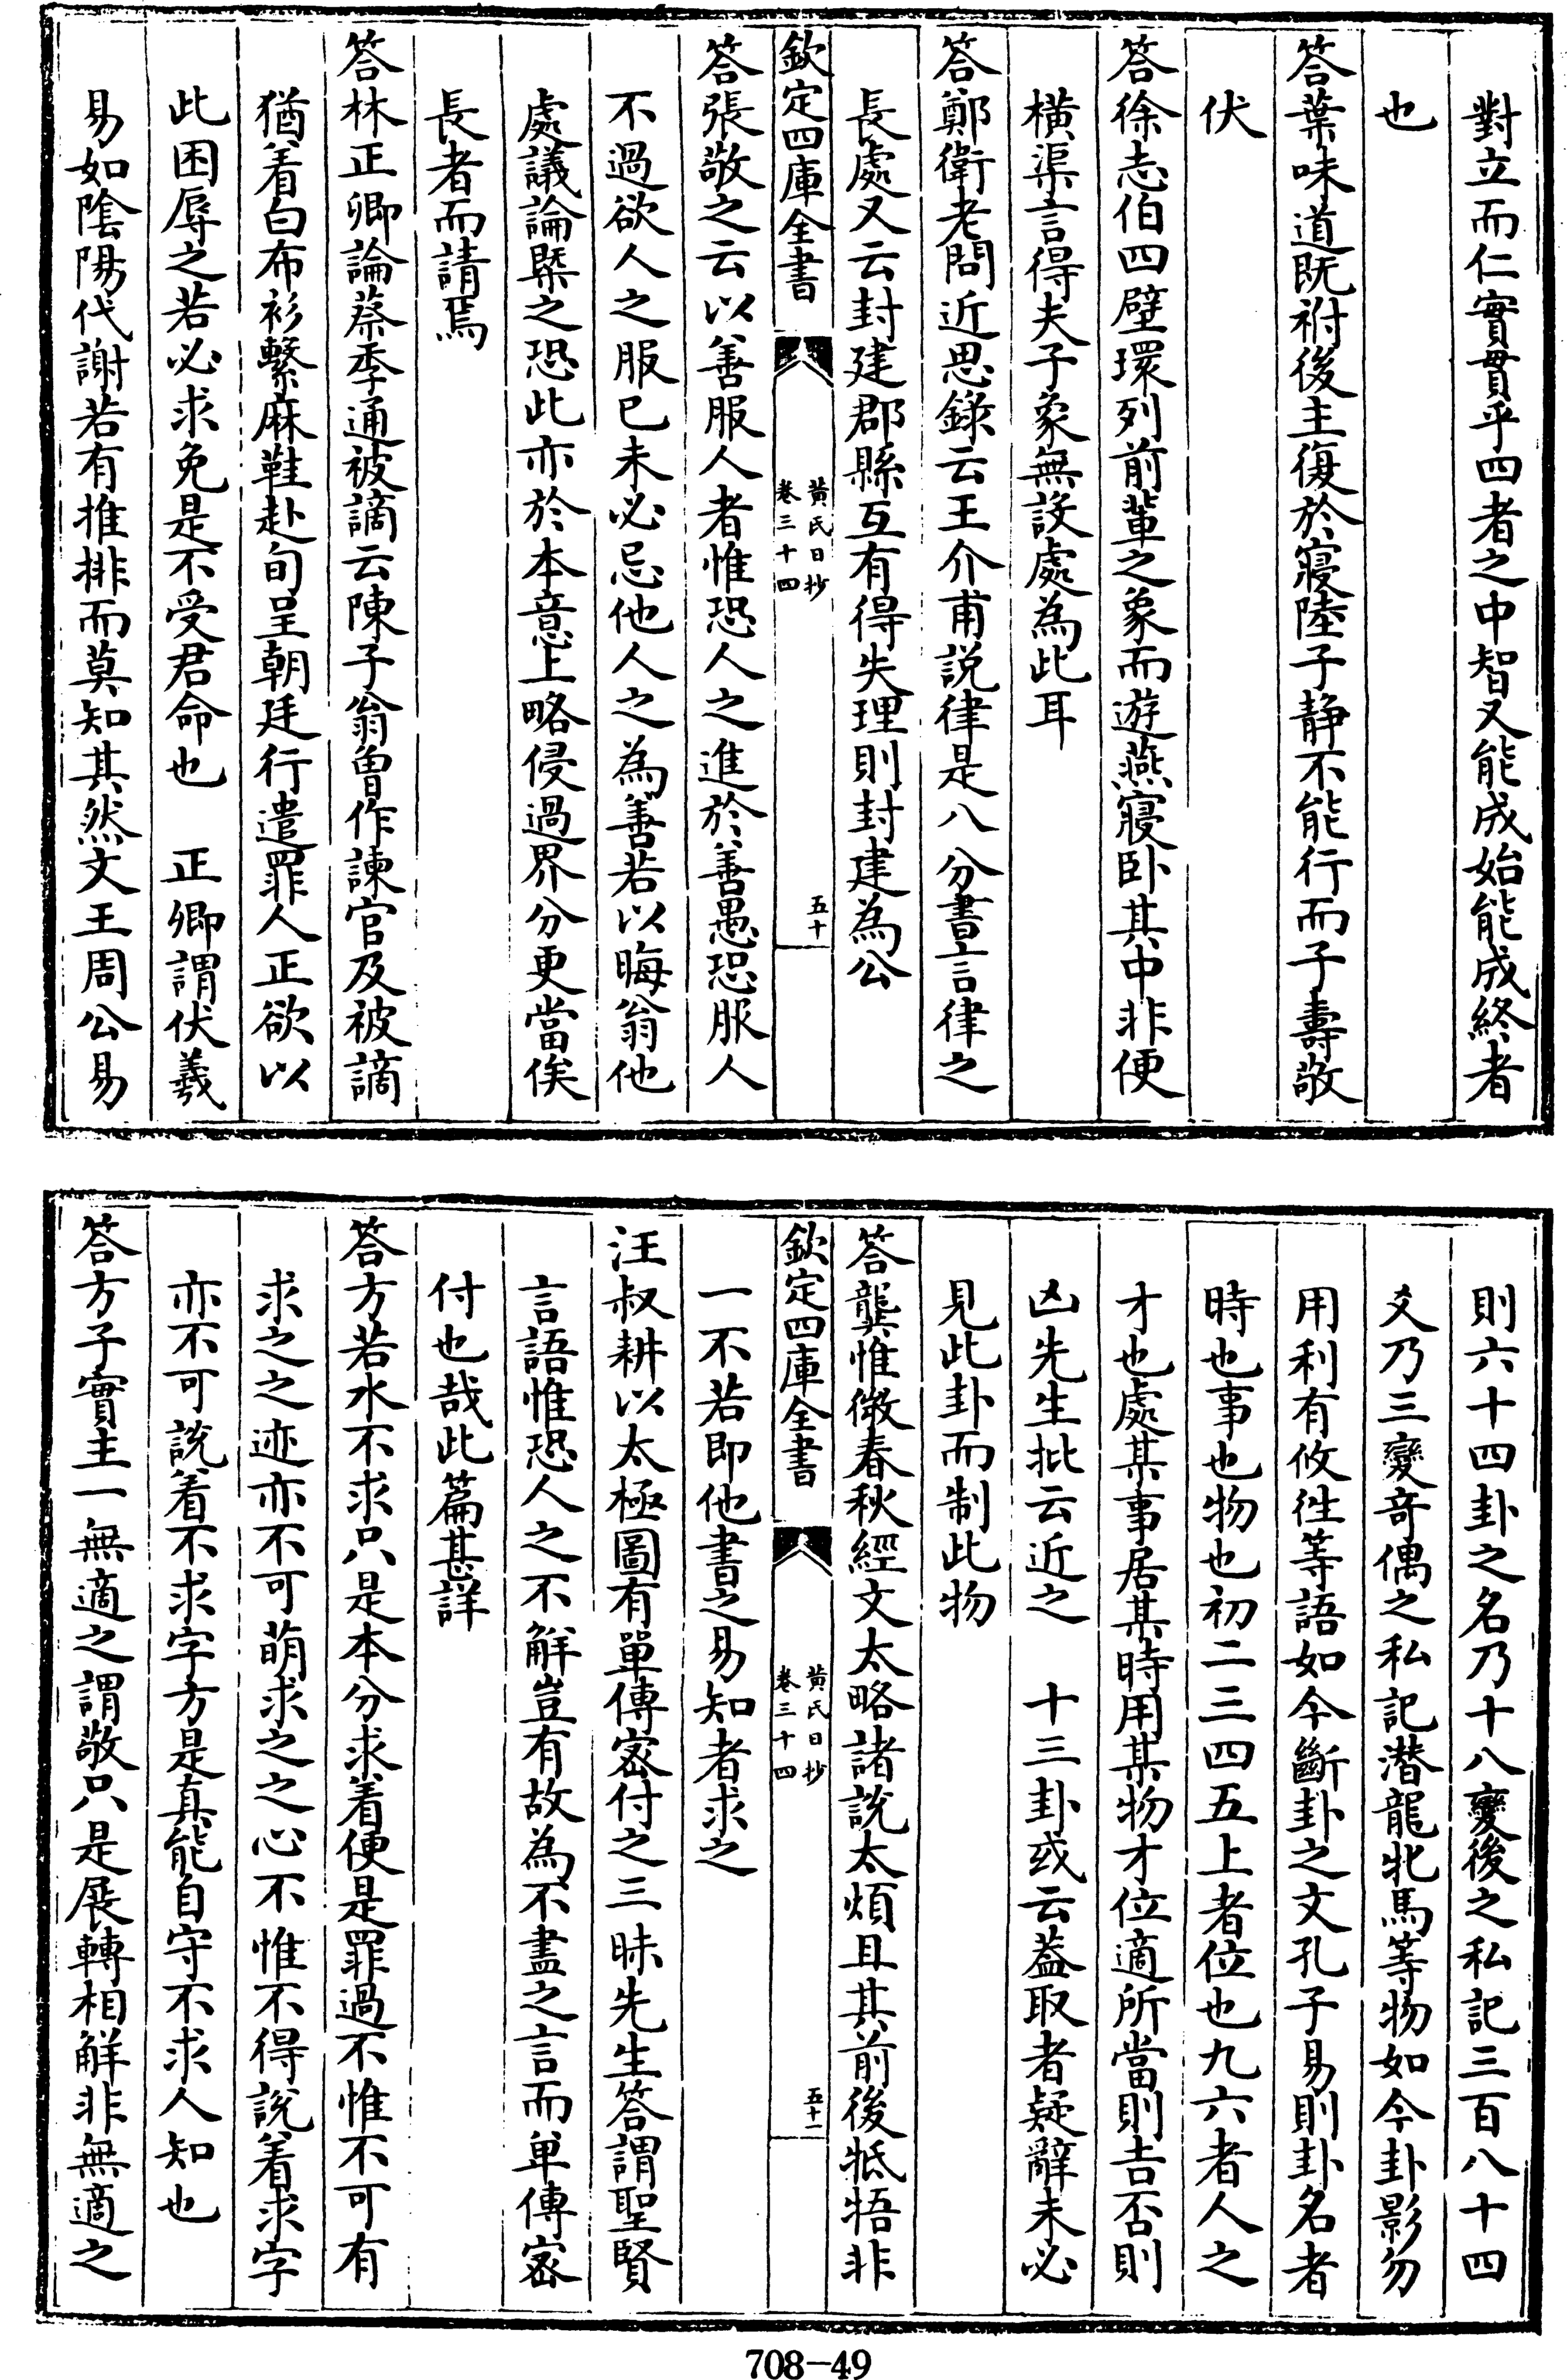 對立而仁實貫乎四者之中智又能成始能成終者
也
答葉味道既祔後主復於寢陸子静不能行而子壽敬
伏
答徐志伯四壁環列前輩之象而遊燕寢卧其中非便
横渠言得夫子象無設處為此耳
答鄭衛老問近思錄云王介甫説律是八分書言律之
長處又云封建郡縣互有得失理則封建為公
欽定四庫全書
黄氏日抄
卷三十四
五十
答張敬之云以善服人者惟恐人之進於善愚恐服人
不過欲人之服已未必忌他人之為善若以晦翁他
處議論槩之恐此亦於本意上略侵過界分更當俟
長者而請焉
答林正卿論蔡季通被謫云陳子翁曾作諫官及被謫
猶着白布衫繫麻鞋赴旬呈朝廷行遣罪人正欲以
此困辱之若必求免是不受君命也　正卿謂伏羲
易如隂陽代謝若有推排而莫知其然文王周公易
則六十四卦之名乃十八變後之私記三百八十四
爻乃三變奇偶之私記潛龍牝馬等物如今卦影勿
用利有攸徃等語如今斷卦之文孔子易則卦名者
時也事也物也初二三四五上者位也九六者人之
才也處某事居某時用某物才位適所當則吉否則
凶先生批云近之　十三卦或云葢取者疑辭未必
見此卦而制此物
答龔惟微春秋經文太略諸説太煩且其前後牴牾非
欽定四庫全書
黄氏日抄
卷三十四
五十一
一不若即他書之易知者求之
汪叔耕以太極圖有單傳宻付之三昧先生答謂聖賢
言語惟恐人之不解豈有故為不盡之言而单傳宻
付也哉此篇甚詳
答方若水不求只是本分求着便是罪過不惟不可有
求之之迹亦不可萌求之之心不惟不得説着求字
亦不可説着不求字方是真能自守不求人知也
答方子實主一無適之謂敬只是展轉相解非無適之
708-49